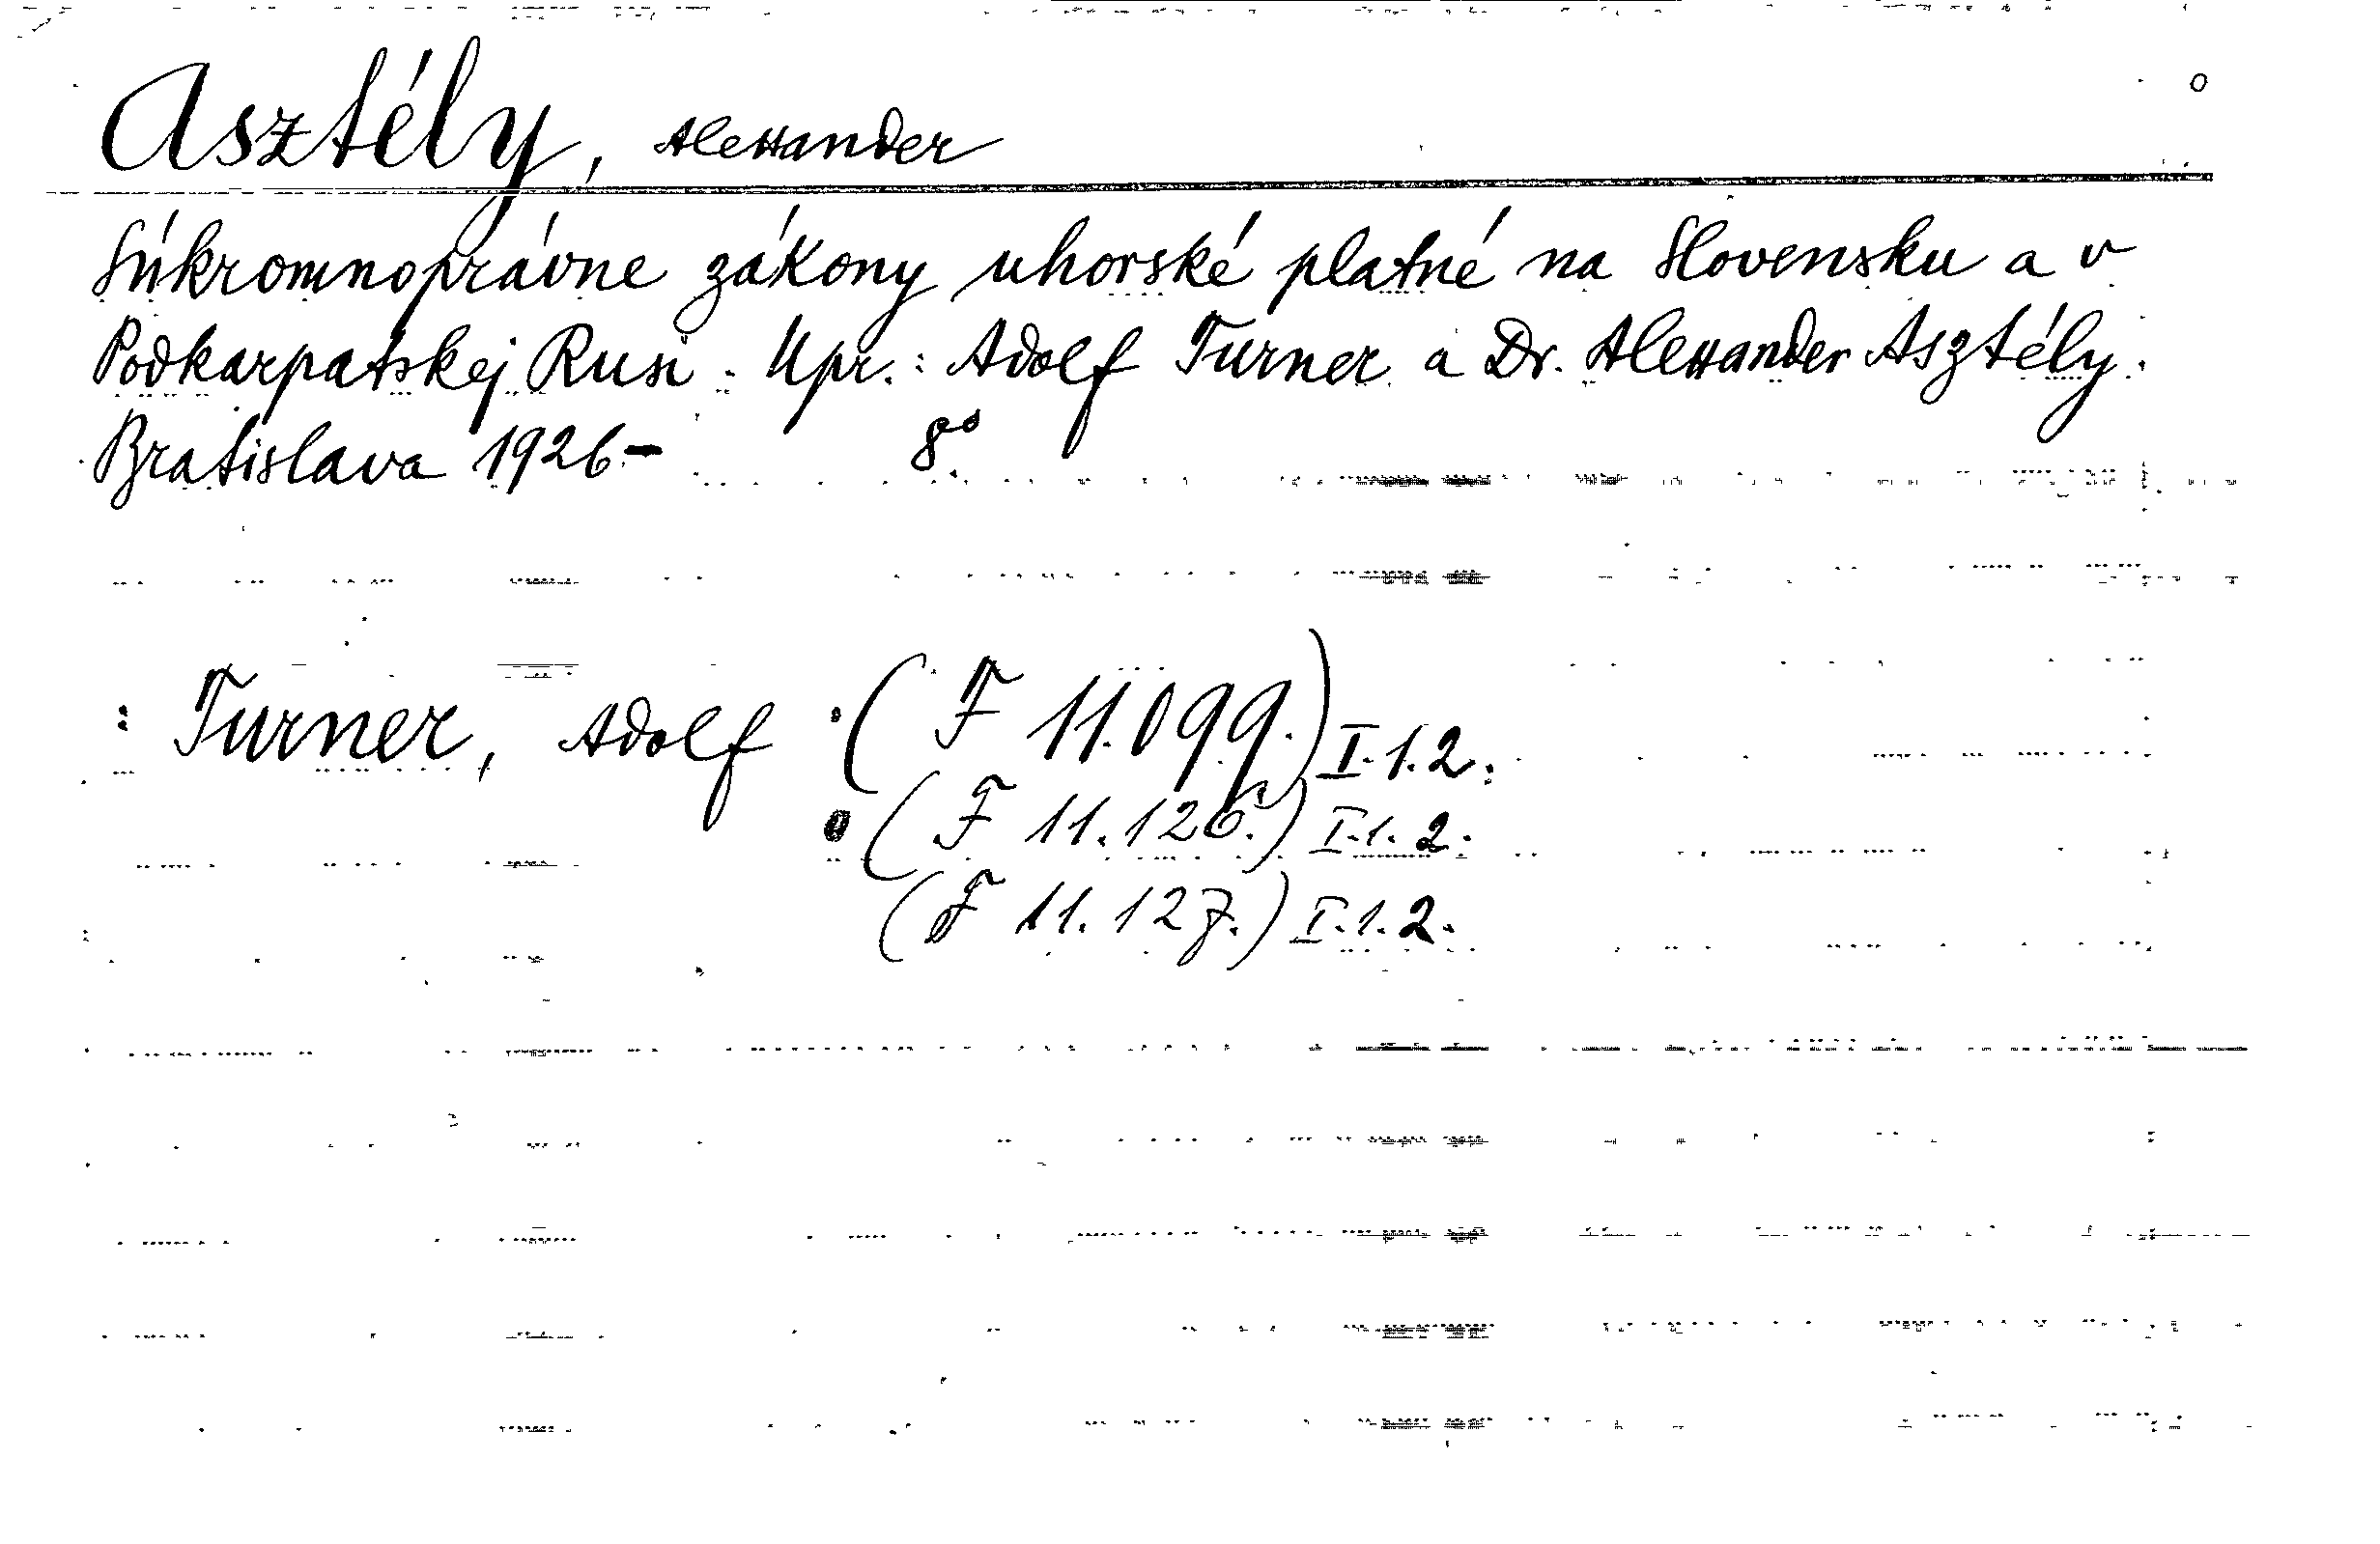 Asztély, Alexander
Súkromnoprávne zákony uhorské platné na Slovensku a v
Podkarpatskej Rusi. Upr.: Adolf Turner a Dr. Alexander Asztély.
Bratislava 1926- 8°
: Turner, Adolf (F 11.099.) I.1.2.
(F 11.126.) I.1.2.
(F 11.127.) I.1.2.